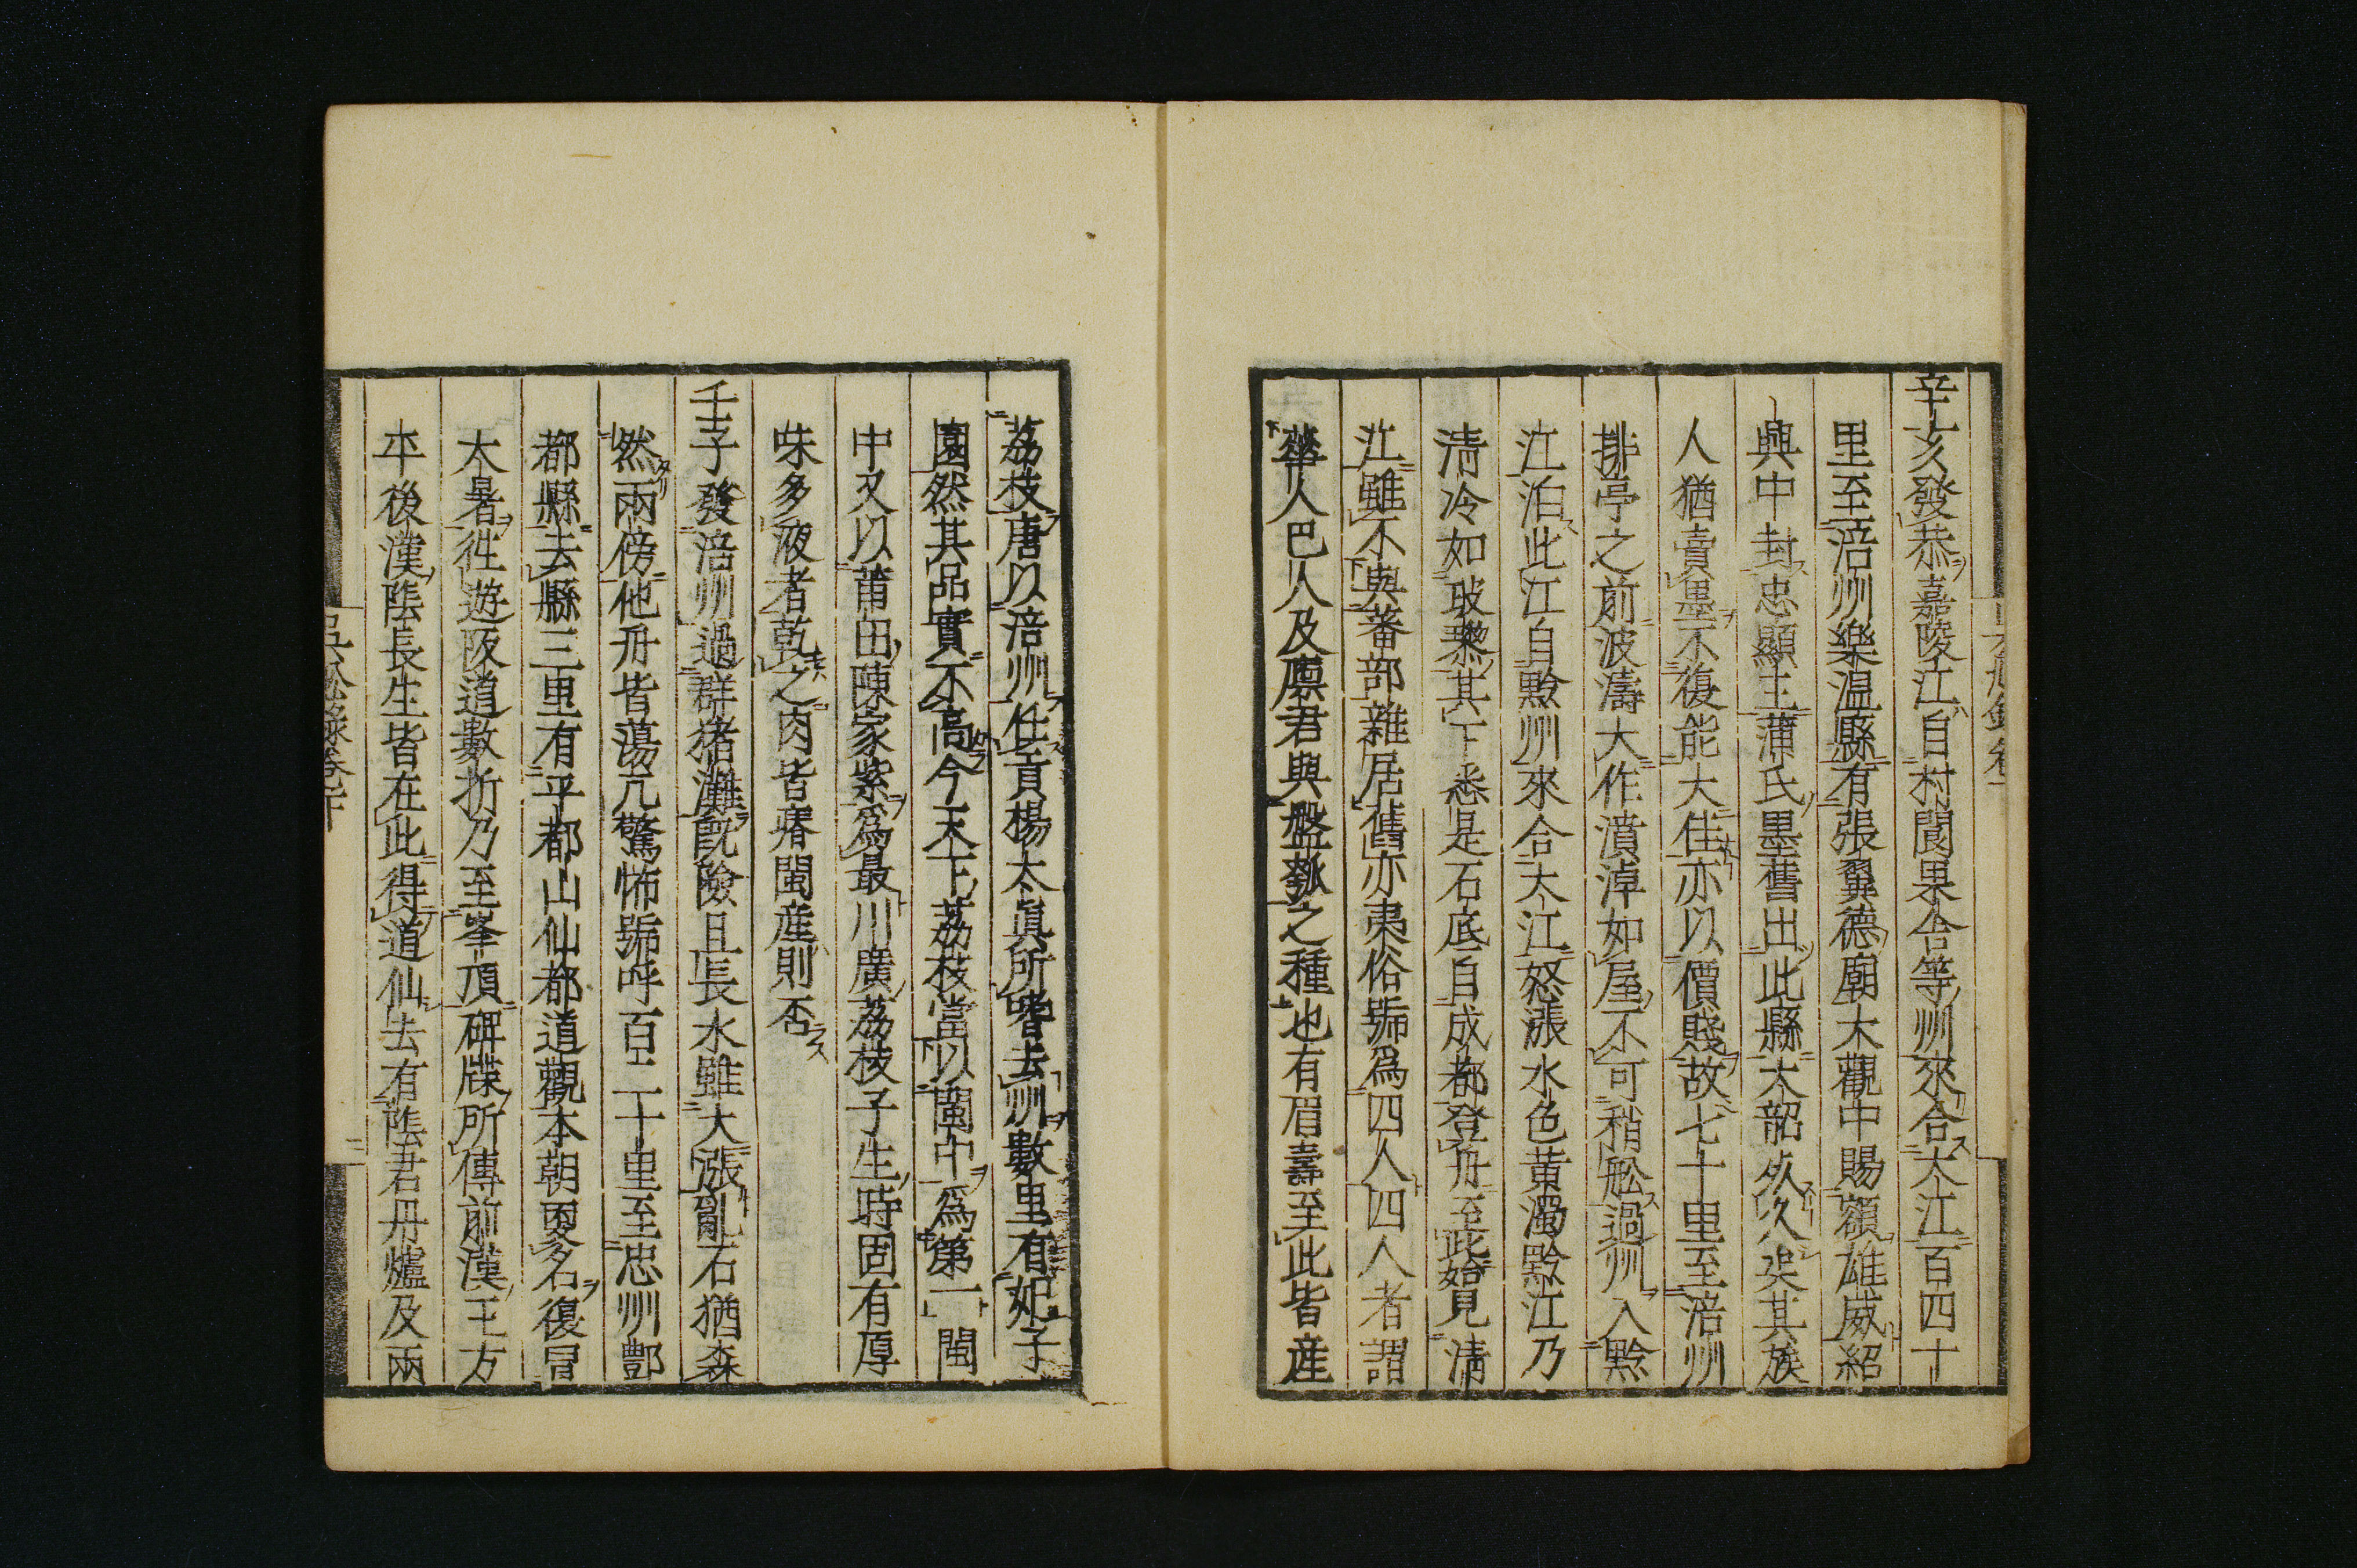 辛亥發恭嘉陵江自村閬果合等州來合大江百四十
里至涪州樂温縣有張翼德廟大觀中賜額雄威紹
興中封忠顯王蒲氏墨舊出此縣大韶死久矣其族
人猶賣墨不復能大佳亦以價賤故七十里至涪州
排亭之前波濤大作濆淖如屋不可稍舩過州入黔
江泊此江自黔州來合大江怒漲水色黄濁黔江乃
清冷如玻瓈其下悉是石底自成都登舟至此始見清
江雖不與蕃部雜居舊亦夷俗號爲四人四人者謂
華人巴人及廩君與盤瓠之種也有眉壽至此皆産
荔枝唐以涪州任貢楊太眞所嗜去州數里有妃子
園然其品實不高今天下荔枝當以閩中爲第一閩
中又以莆田陳家紫爲最川廣荔枝子生時固有厚
味多液者乾之肉皆瘠閩産則否
壬子發涪州過群猪灘既險且長水雖大漲亂石猶森
然兩傍他舟皆蕩兀驚怖號呼百二十里至忠州酆
都縣去縣三里有平都山仙都道觀本朝更名復冒
大暑徃遊阪道數折乃至峯頂碑牒所傳前漢王方
平後漢隂長生皆在此得道仙去有隂君丹爐及兩
吳舩錄卷下